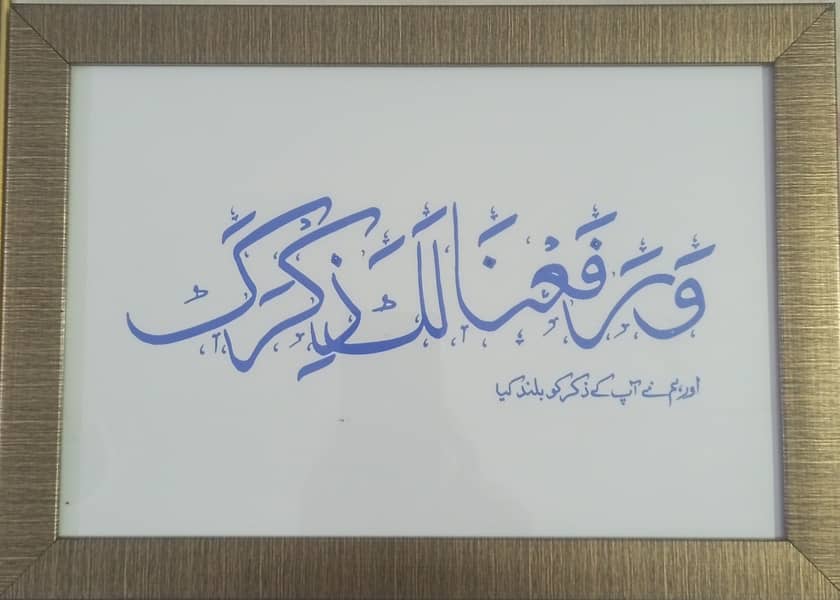 وَرَفَعْنَا لَكَ ذِكْرَكَ
اور ہم نے آپ کے ذکر کو بلند کیا